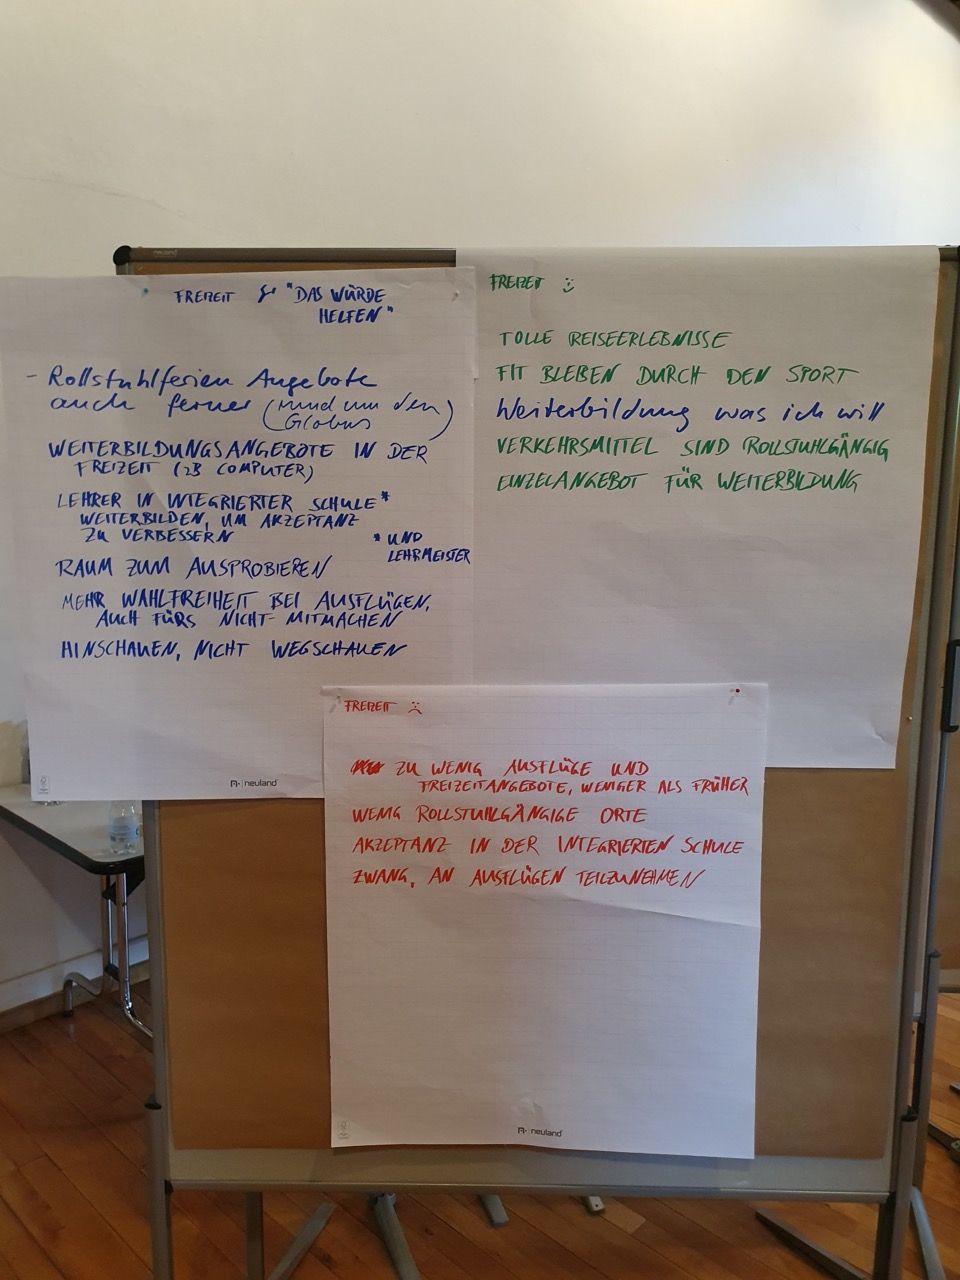 FREIZEIT "DAS WÜRDE
HELFEN"
- Rollstuhlferien Angebote
auch ferner (rund um den
Globus)
WEITERBILDUNGSANGEBOTE IN DER
FREIZEIT (ZB COMPUTER)
LEHRER IN INTEGRIERTER SCHULE*
WEITERBILDEN, UM AKZEPTANZ
ZU VERBESSERN
* UND
LEHRMEISTER
RAUM ZUM AUSPROBIEREN
MEHR WAHLFREIHEIT BEI AUSFLÜGEN,
AUCH FÜRS NICHT-MITMACHEN
HINSCHAUEN, NICHT WEGSCHAUEN
neuland
FREIZEIT :)
TOLLE REISEERLEBNISSE
FIT BLEIBEN DURCH DEN SPORT
Weiterbildung was ich will
VERKEHRSMITTEL SIND ROLLSTUHLGÄNGIG
EINZELANGEBOT FÜR WEITERBILDUNG
FREIZEIT :(
ZU WENIG AUSFLÜGE UND
FREIZEITANGEBOTE, WENIGER ALS FRÜHER
WENIG ROLLSTUHLGÄNGIGE ORTE
AKZEPTANZ IN DER INTEGRIERTEN SCHULE
ZWANG, AN AUSFLÜGEN TEILZUNEHMEN
neuland